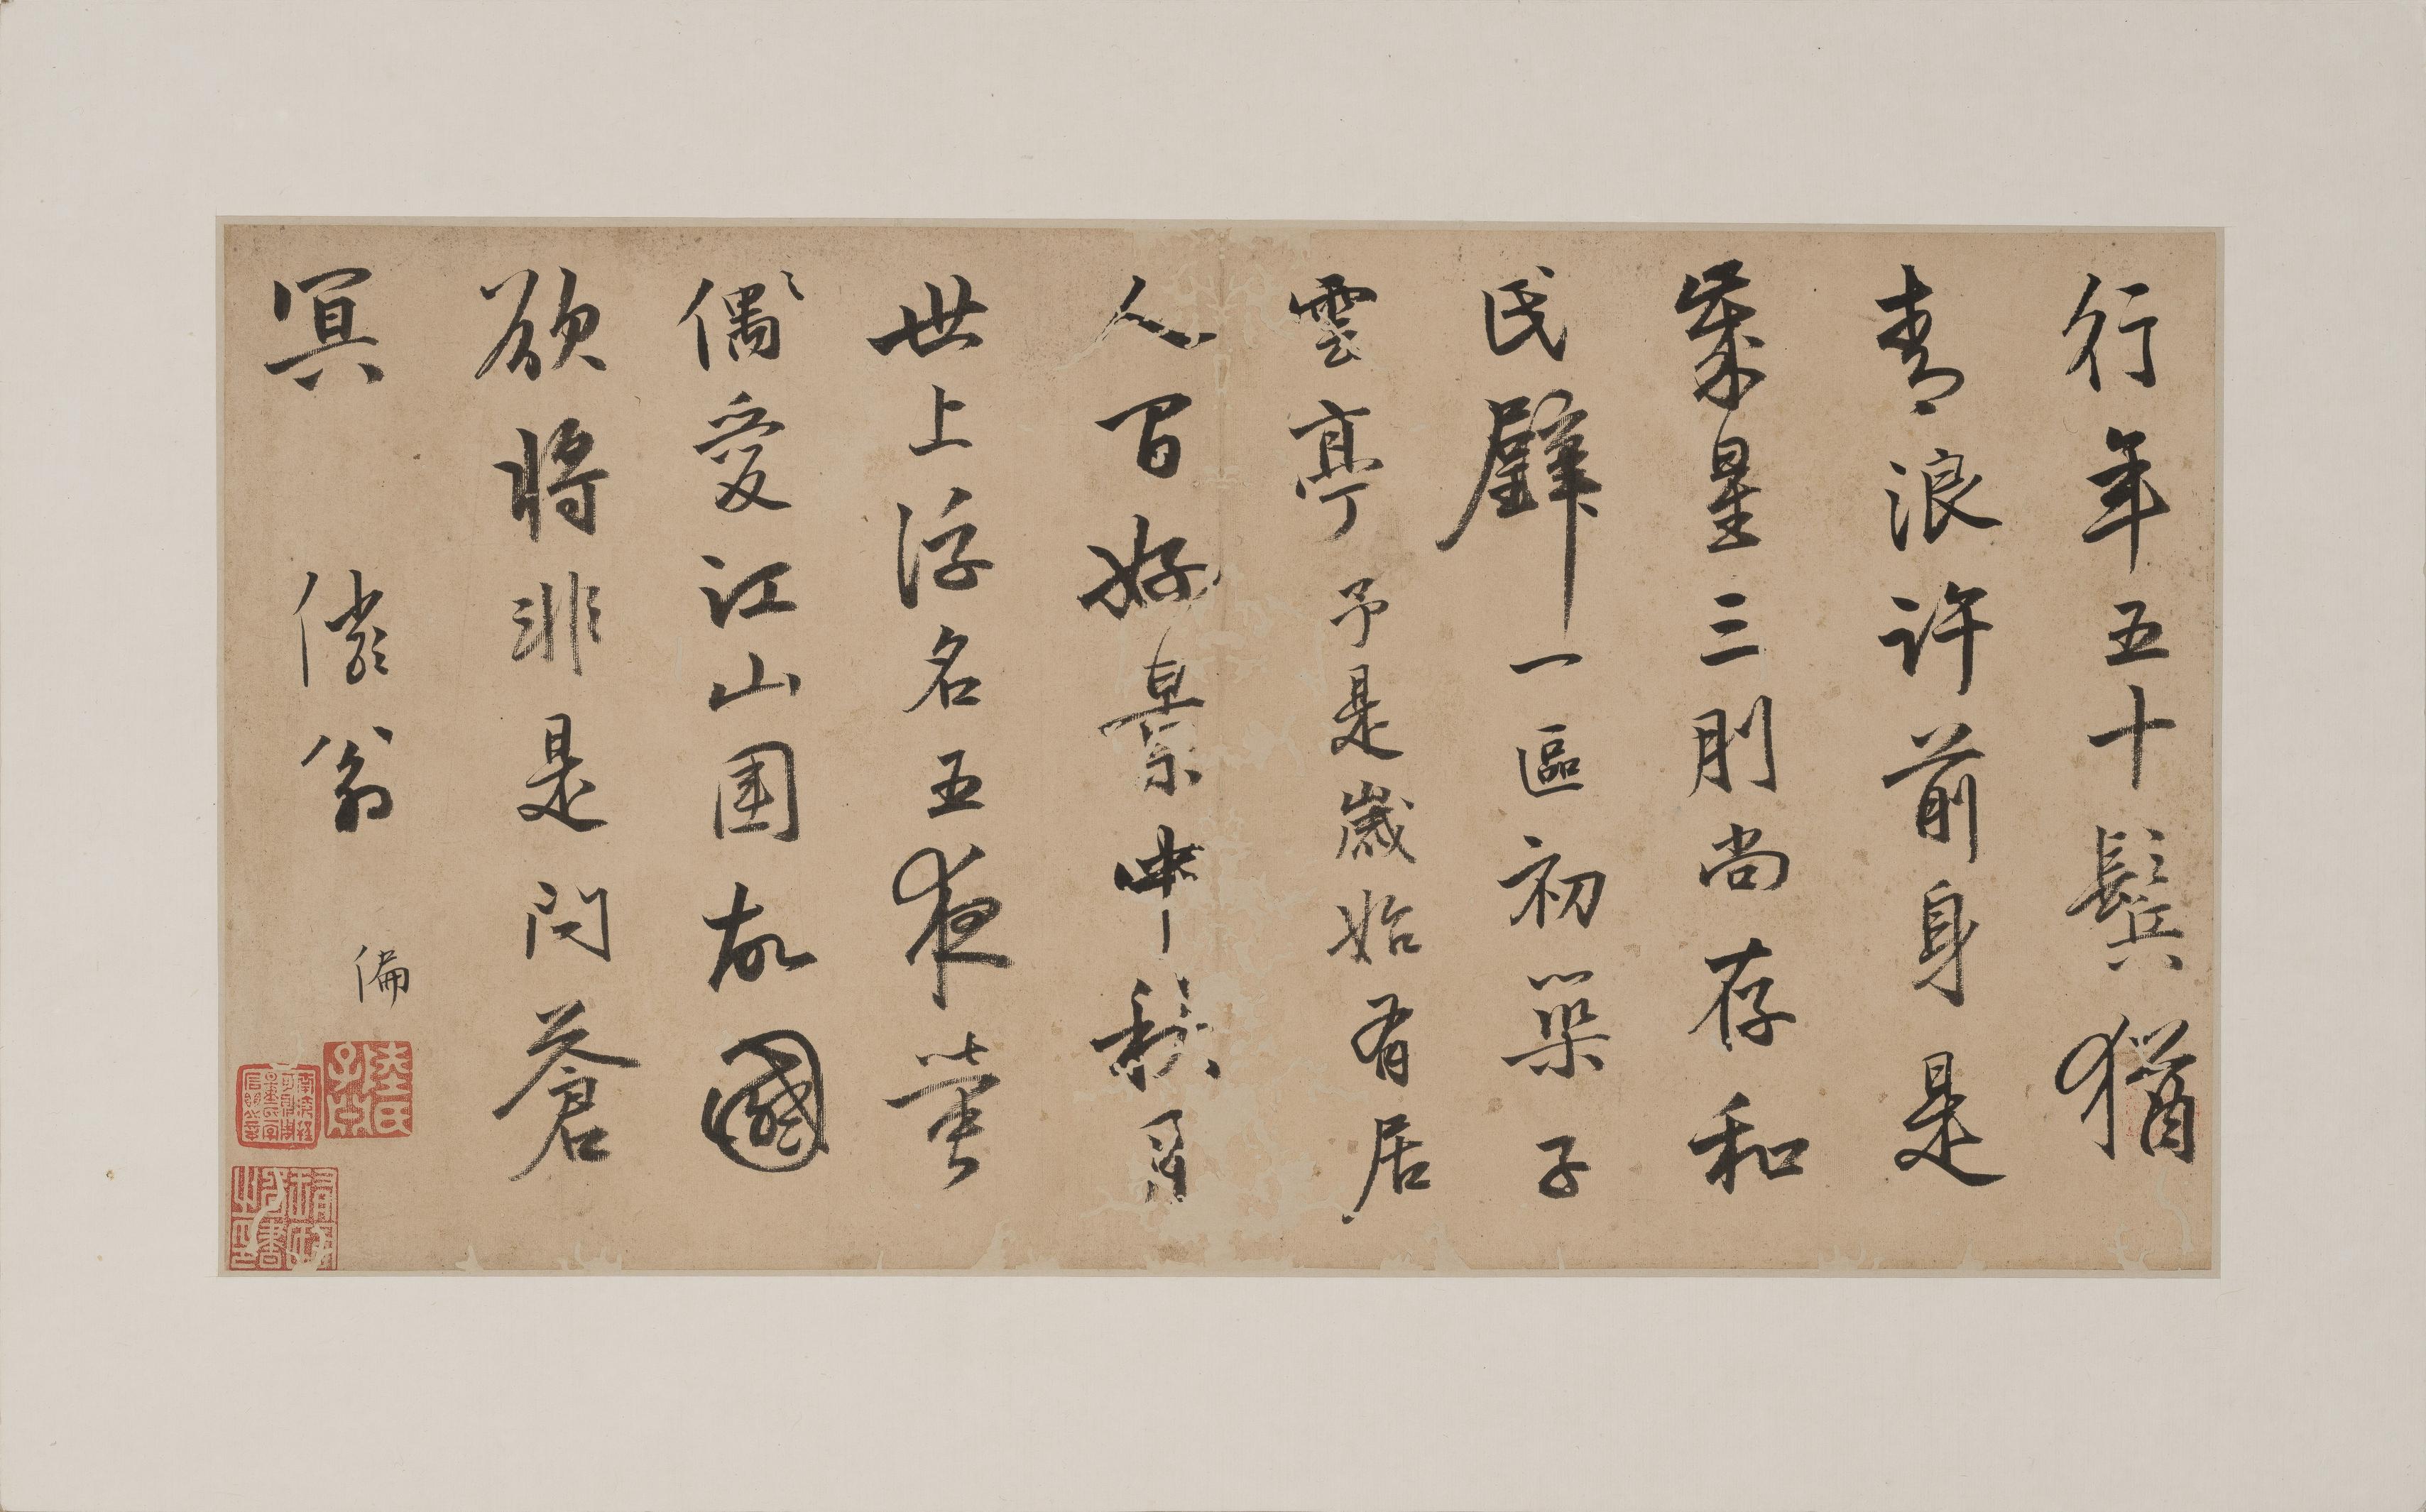 行年五十鬢猶
青浪許前身是
歲星三刖尚存和
氏璧一區初築子
雲亭予是歲始有居
人間好景中秋月
世上浮名五夜螢
偶愛江山圍故國
欲將非是問蒼
冥 翁